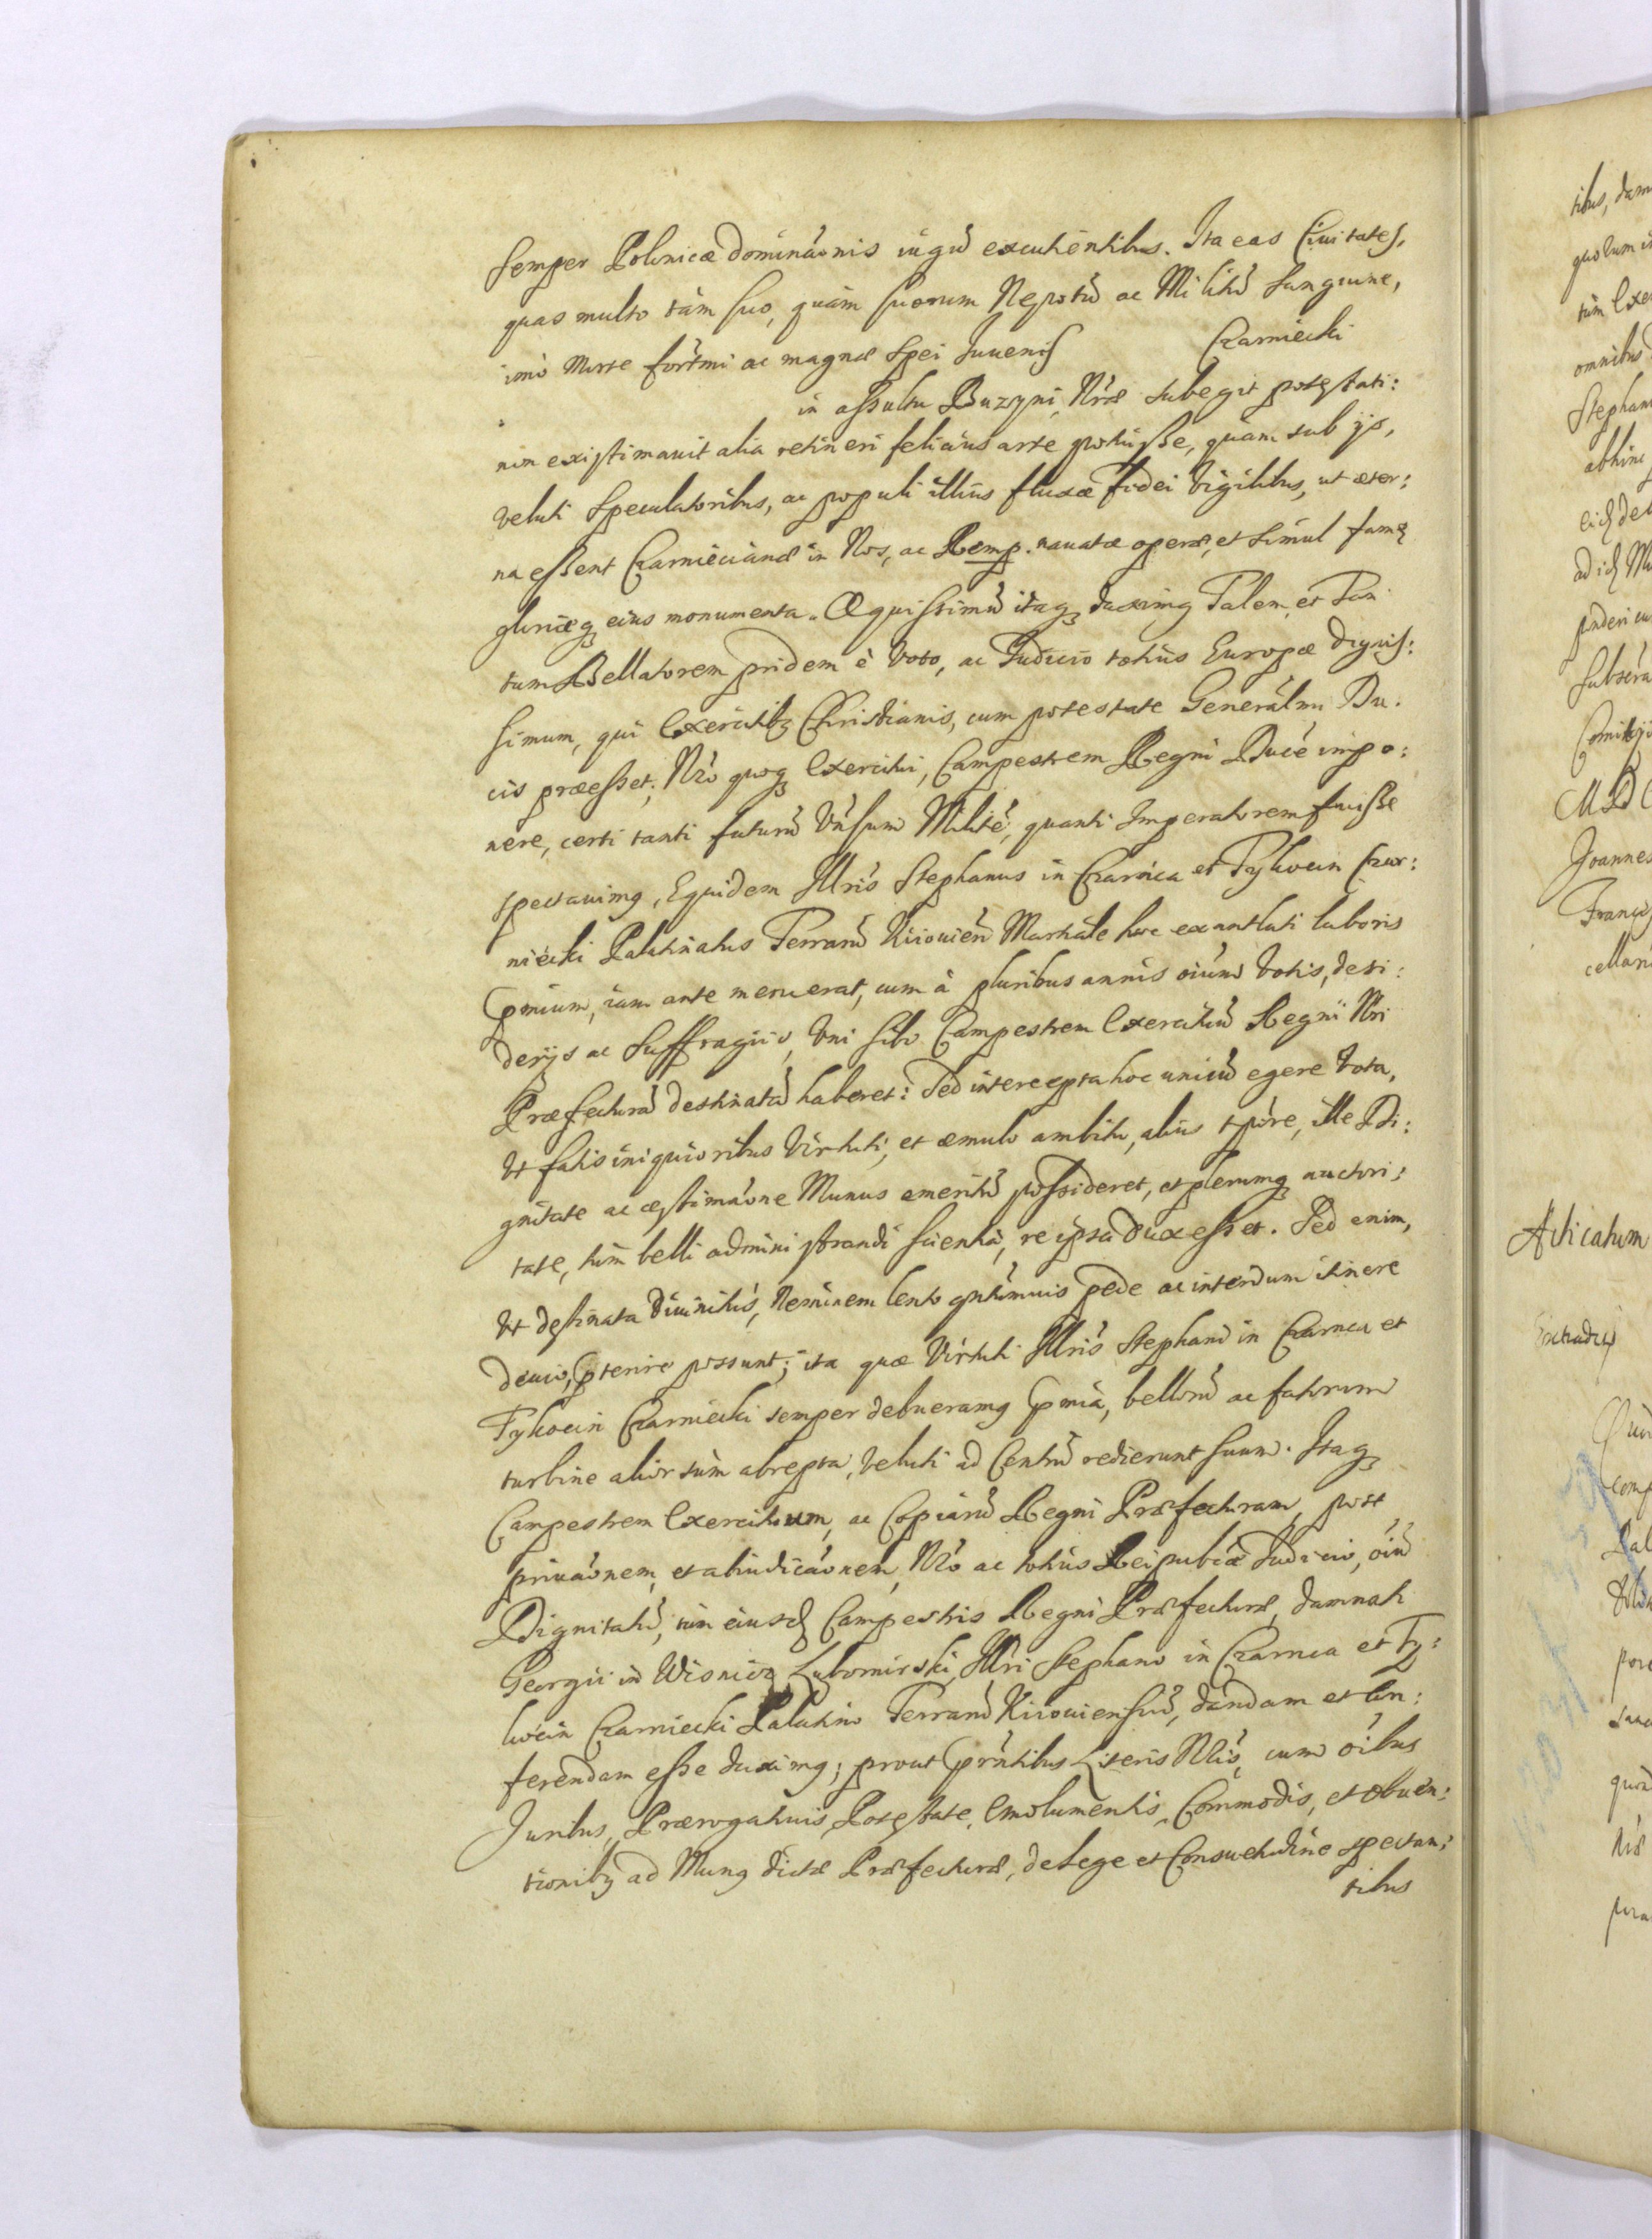 semper Polonicæ dominaõnis iugũ excutientibus. Ita eas Ciuitates,
quas multo tàm suo, quàm suorum Nepotũ ac Militũ sanguine,
imò Morte fortmi ac magnæ spei Iuuenis Czarniecki
in assultu Buzyni, Nræ subegit potestati:
non existimauit alia retineri felicius arte potuisse, quàm sub ijs,
veluti Speculatoribus, ac populi illius fluxæ fidei Vigilibus, ut æter:
na essent Czarniecianæ in Nos, ac Remp. nauatæ operæ, et simul famę
gloriæq; eius monumenta. Æquissimũ itaq; duximq Talem et Tan
tum Bellatorem pridem è Voto, ac Iudicio totius Europæ digniss:
simum, qui Exercitibq Christianis, cum potestate Generalmi Du:
cis præesset, Nro quoq; Exercitui, Campestrem Regni Ducẽ impo:
nere, certi tanti futurũ Vnsum Militẽ, quanti Imperatorem fuisse
spectauimq. Equidem Illris Stephanus in Czarnca et Tykocin Czar:
niecki Palatinatus Terrarũ Kiiouieñ Martiale hoc exantlati laboris
pmium, iam ante meruerat, cum à pluribus annis oium Votis, desi:
derijs ac Suffragiis, Vni sibi Campestrem Exercituũ Regni Nri
Præfecturã destinatã haberet: Sed intercepta hoc unicũ egere Vota,
Vt fatis iniquioribus Virtuti, et æmulo ambitu, alius tpore, ille Di:
gnitate ac æstimaõne Munus emeritũ possideret, et plerumq; auctori:
tate, tùm belli administrandi scientia, re ipsa Dux esset. Sed enim,
Vt destinata Diuinitùs, Neminem lento quãtumuis pede ac interdum itinere
deuio, pterire possunt; ita quæ Virtuti Illris Stephani in Czarnca et
Tykocin Czarniecki semper debueramq pmia, bellorũ ac fatorum
turbine aliorsùm abrepta, Veluti ad Centrũ redierunt suum. Itaq;
Campestrem Exercituum, ac Copiarũ Regni Præfecturam, post
priuaõnem, et abiudicaõnem, Nro ac totius Reipublcæ Iudicio, oiũ
Dignitatũ, tùm eiusd Campestris Regni Præfecturæ, damnati
Georgii in Wisnicz Lubomirski, Illri Stephano in Czarnca et Ty:
kocin Czarniecki Palatino Terrarũ Kiiouiensiũ, dandam et con:
ferendam esse duximq; prout pñtibus Literis Nris, cum oibus
Juribus, Prærogatiuis, Potestate, Emolumentis, Commodis, et obuen:
tionibq ad Munq dictæ Præfecturæ, de Lege et Consuetudine spectan:
tibus